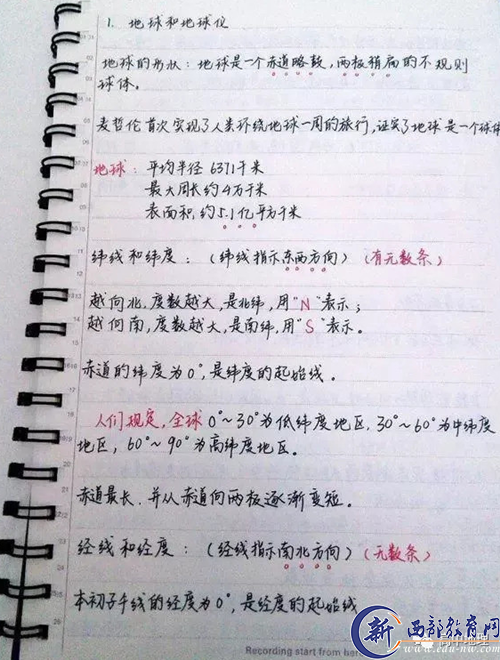 1. 地球和地球仪
地球的形状：地球是一个赤道略鼓，两极稍扁的不规则
球体。
麦哲伦首次实现了人类环绕地球一周的旅行，证实了地球是一个球体
地球：平均半径 6371千米
最大周长约4万千米
表面积约5.1亿平方千米
纬线和纬度：（纬线指示东西方向）（有无数条）
越向北，度数越大，是北纬，用"N"表示；
越向南，度数越大，是南纬，用"S"表示。
赤道的纬度为0°，是纬度的起始线。
人们规定，全球0°～30°为低纬度地区，30°～60°为中纬度
地区，60°～90°为高纬度地区。
赤道最长，并从赤道向两极逐渐变短。
经线和经度：（经线指示南北方向）（无数条）
本初子午线的经度为0°，是经度的起始线
Recording start from her
高中地理
西部教育网
www.edu-nw.com